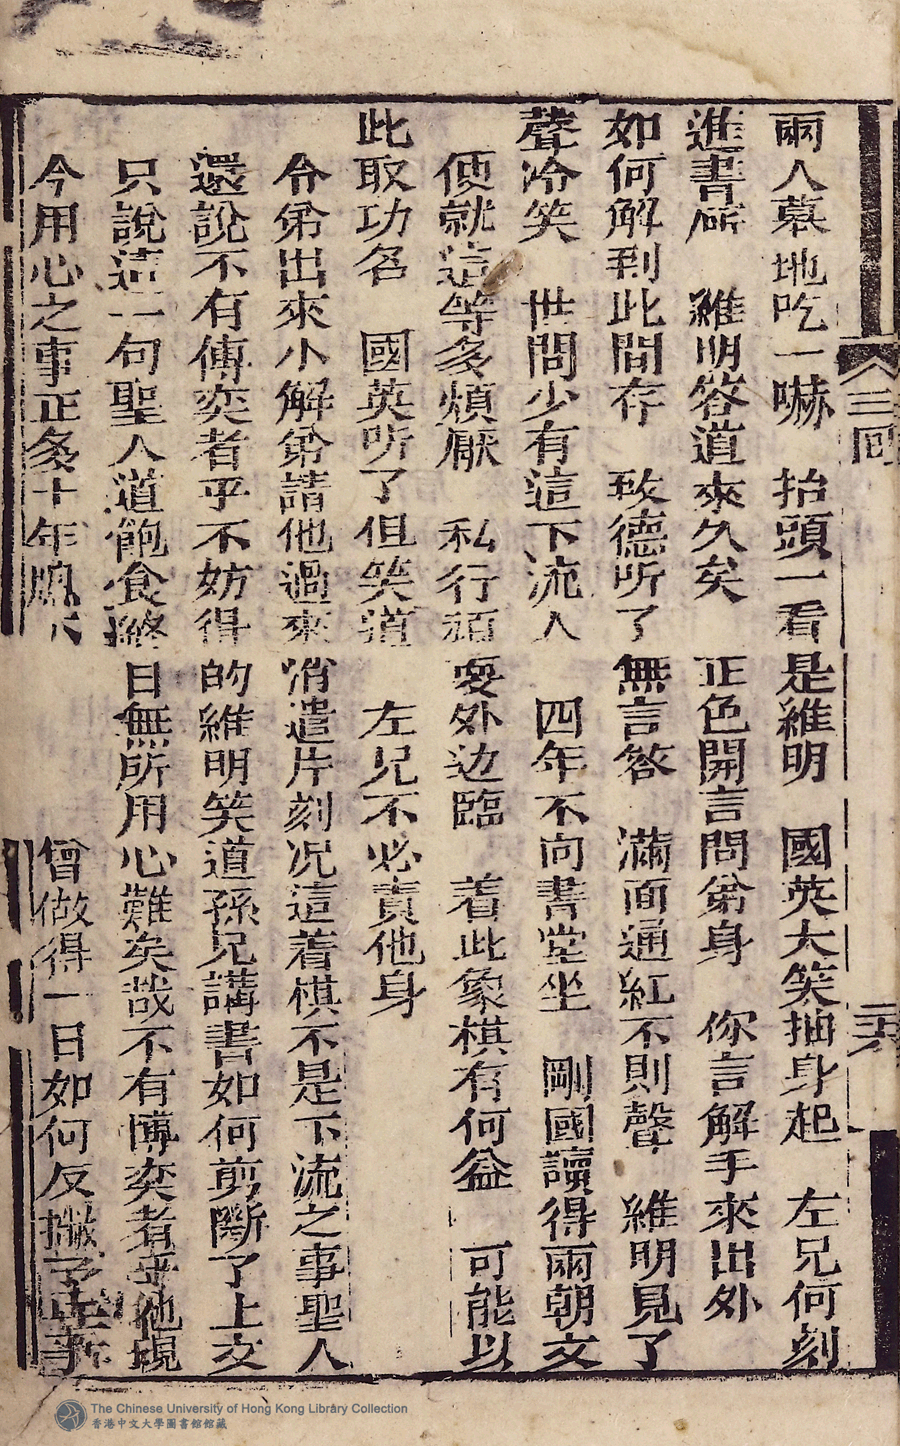 三回
三十六
兩人驀地吃一嚇 抬頭一看是維明 國英大笑抽身起 左兄何刻
進書府 維明答道來久矣 正色開言問弟身 你言解手來出外
如何解到此間存 致德听了無言答 滿面通紅不則聲 維明見了
聲冷笑 世間少有這下流人 四年不向書堂坐 剛國讀得兩朝文
便就這等多煩厭 私行頑耍外边臨 着此象棋有何益 可能以
此取功名 國英听了但笑道 左兄不必責他身
令弟出來小解弟請他過來消遣片刻况這着棋不是下流之事聖人
還說不有博奕者乎不妨得的維明笑道孫兄講書如何剪斷了上文
只說這一句聖人道飽食終日無所用心難矣哉不有博奕者乎他堤
今用心之事正多十年 曾做得一日如何反撇了正事
The Chinese University of Hong Kong Library Collection
香港中文大學圖書館館藏